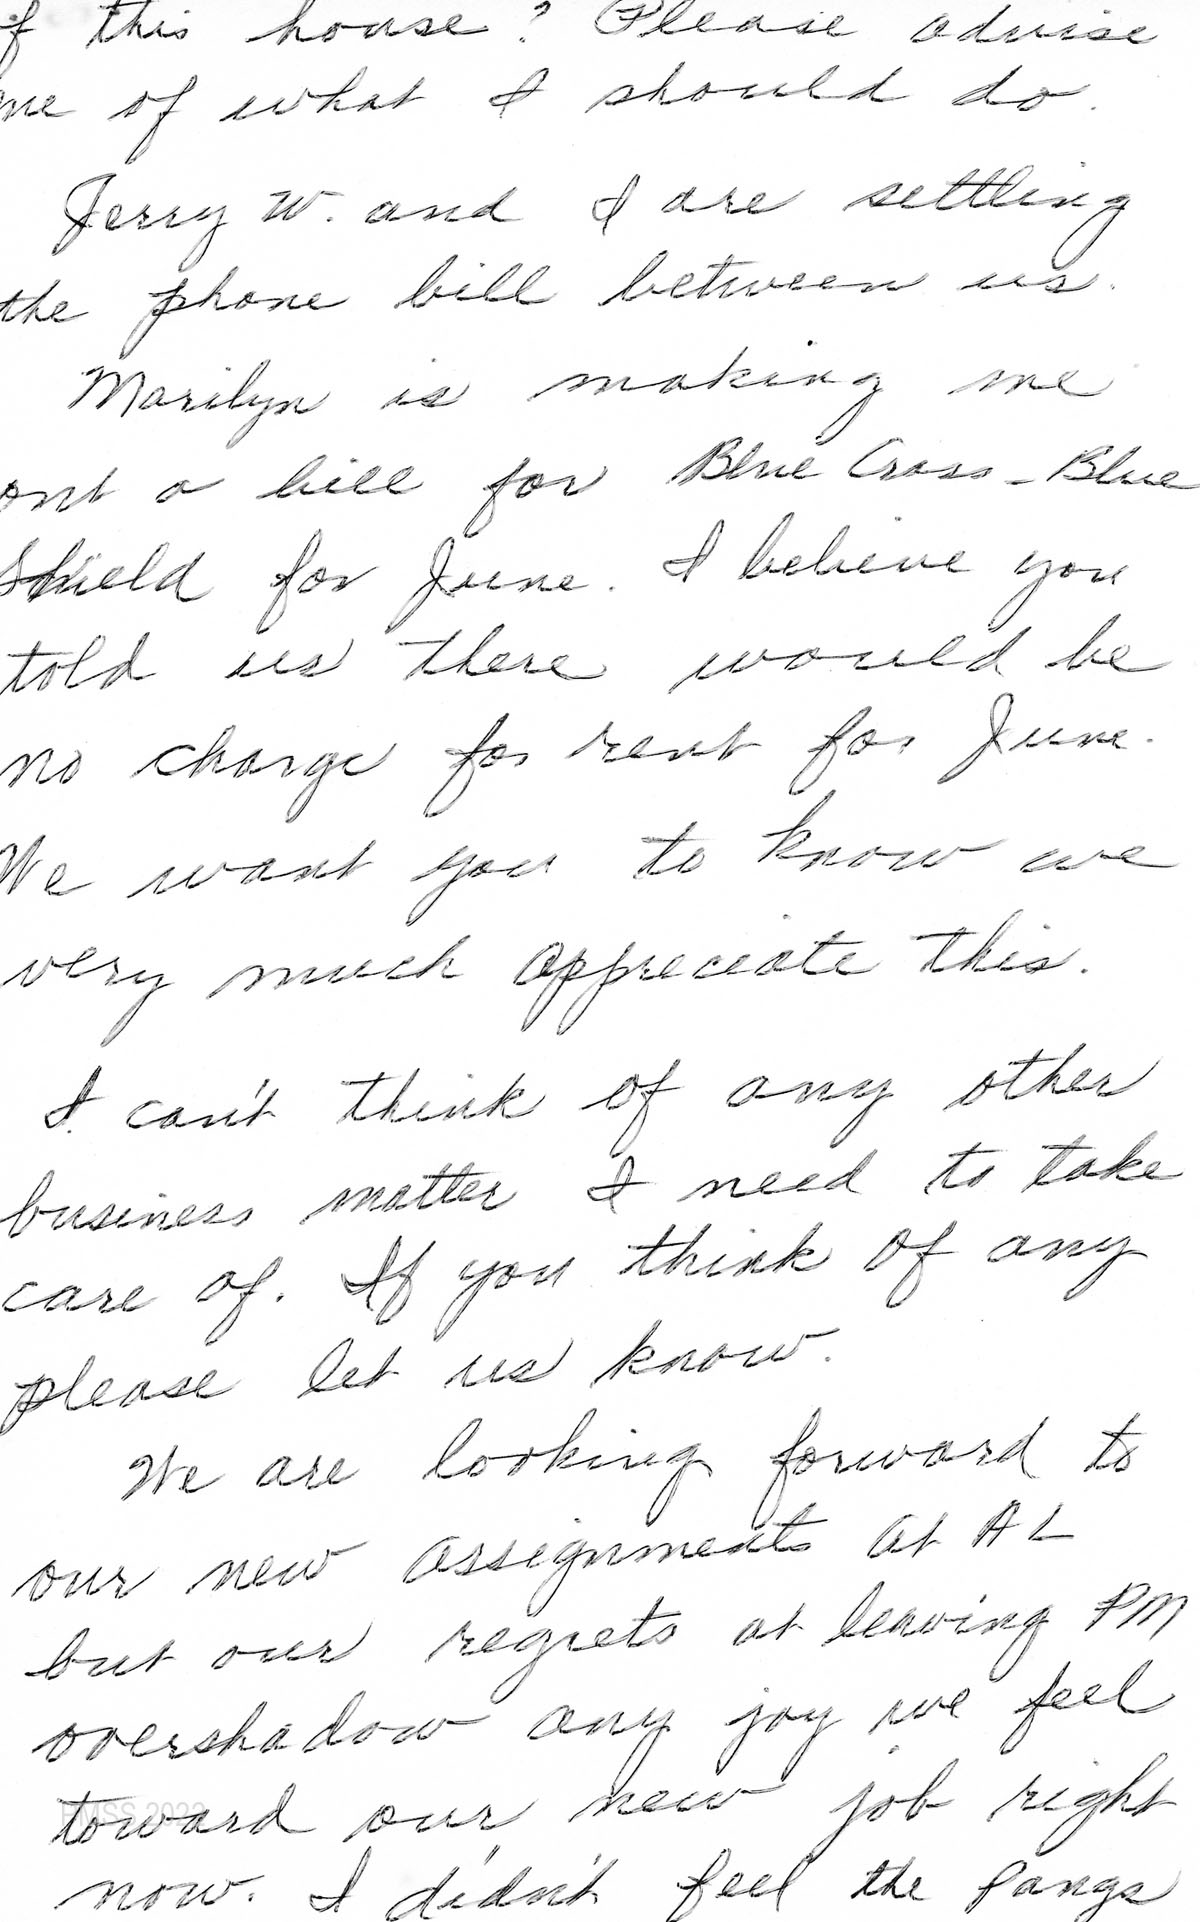 f this house? Please advise
me of what I should do.
Jerry W. and I are settling
the phone bill between us.
Marilyn is making me
out a bill for Blue Cross - Blue
Shield for June. I believe you
told us there would be
no charge for rent for June.
We want you to know we
very much appreciate this.
I can't think of any other
business matter I need to take
care of. If you think of any
please let us know.
We are looking forward to
our new assignments at AL
but our regrets at leaving PM
overshadow any joy we feel
toward our new job right
PMSS 2022
now. I didn't feel the pangs